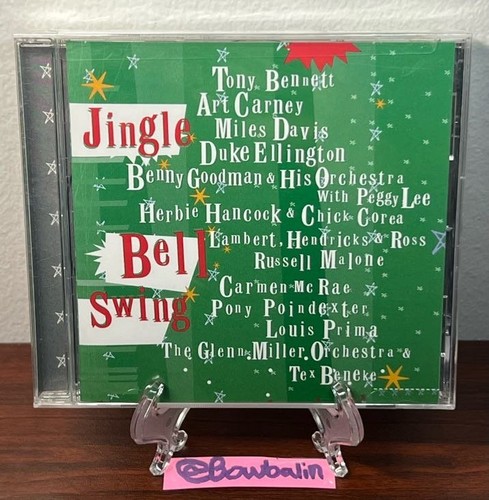 Tony Bennett
Art Carney
Jingle
Miles Davis
Duke Ellington
Benny Goodman & His Orchestra
With Peggy Lee
Herbie Hancock & Chick Corea
Bell
Lambert, Hendricks & Ross
Russell Malone
Carmen Mc Rae
Swing
Pony Poindexter
Louis Prima
The Glenn Miller Orchestra &
Tex Beneke
@Bowbalin